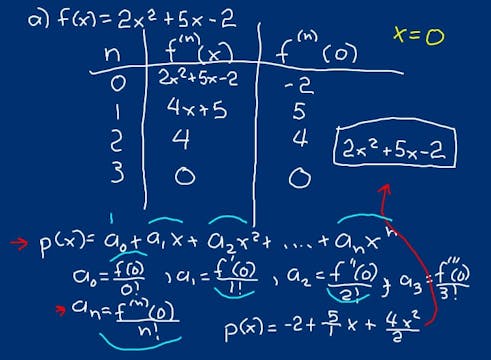 a) f(x) = 2x² + 5x - 2
x = 0
n f⁽ⁿ⁾(x) f⁽ⁿ⁾(0)
0 2x²+5x-2 -2
1 4x+5 5
2 4 4
3 0 0
2x²+5x-2
→ p(x) = a₀ + a₁x + a₂x² + .... + aₙxⁿ
a₀ = f(0)/0! , a₁ = f'(0)/1! , a₂ = f''(0)/2! , a₃ = f'''(0)/3!
→ aₙ = f⁽ⁿ⁾(0)/n!
p(x) = -2 + 5/1 x + 4x²/2